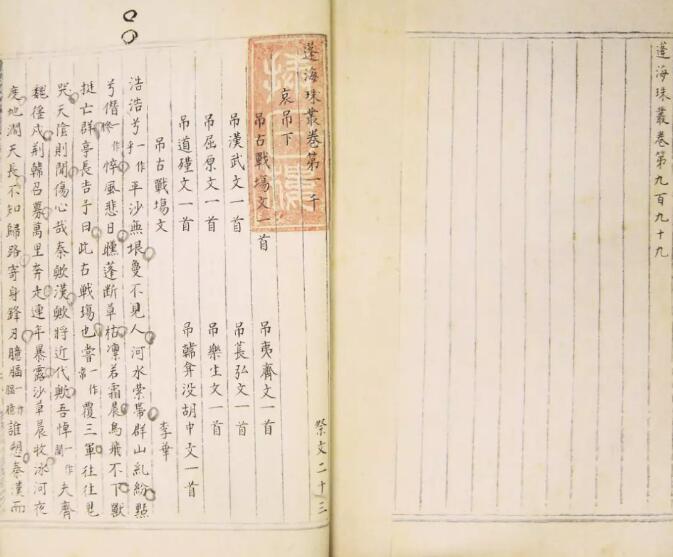 蓬海珠叢卷第九百九十九
蓬海珠叢卷第一千
祭文二十三
哀吊下
吊古戰場文一首 吊夷齊文一首
吊漢武文一首 吊萇弘文一首
吊屈原文一首 吊樂生文一首
吊道殣文一首 吊韓弇没胡中文一首
吊古戰場文 李華
浩浩兮一作乎平沙無垠敻不見人河水縈帶群山糺紛黯
兮僭一作慘悴風悲日曛蓬断草枯凛若霜晨鳥飛不下獸
挺亡群亭長告予曰此古戰場也嘗一作常覆三軍往往鬼
哭天陰則聞傷心哉秦歟漢歟將近代歟吾悼一作聞夫齊
魏徭戍荆韓召募萬里奔走連年暴露沙草晨牧冰河夜
度地濶天長不知歸路寄身鋒刃臆一作誰愬秦漢而